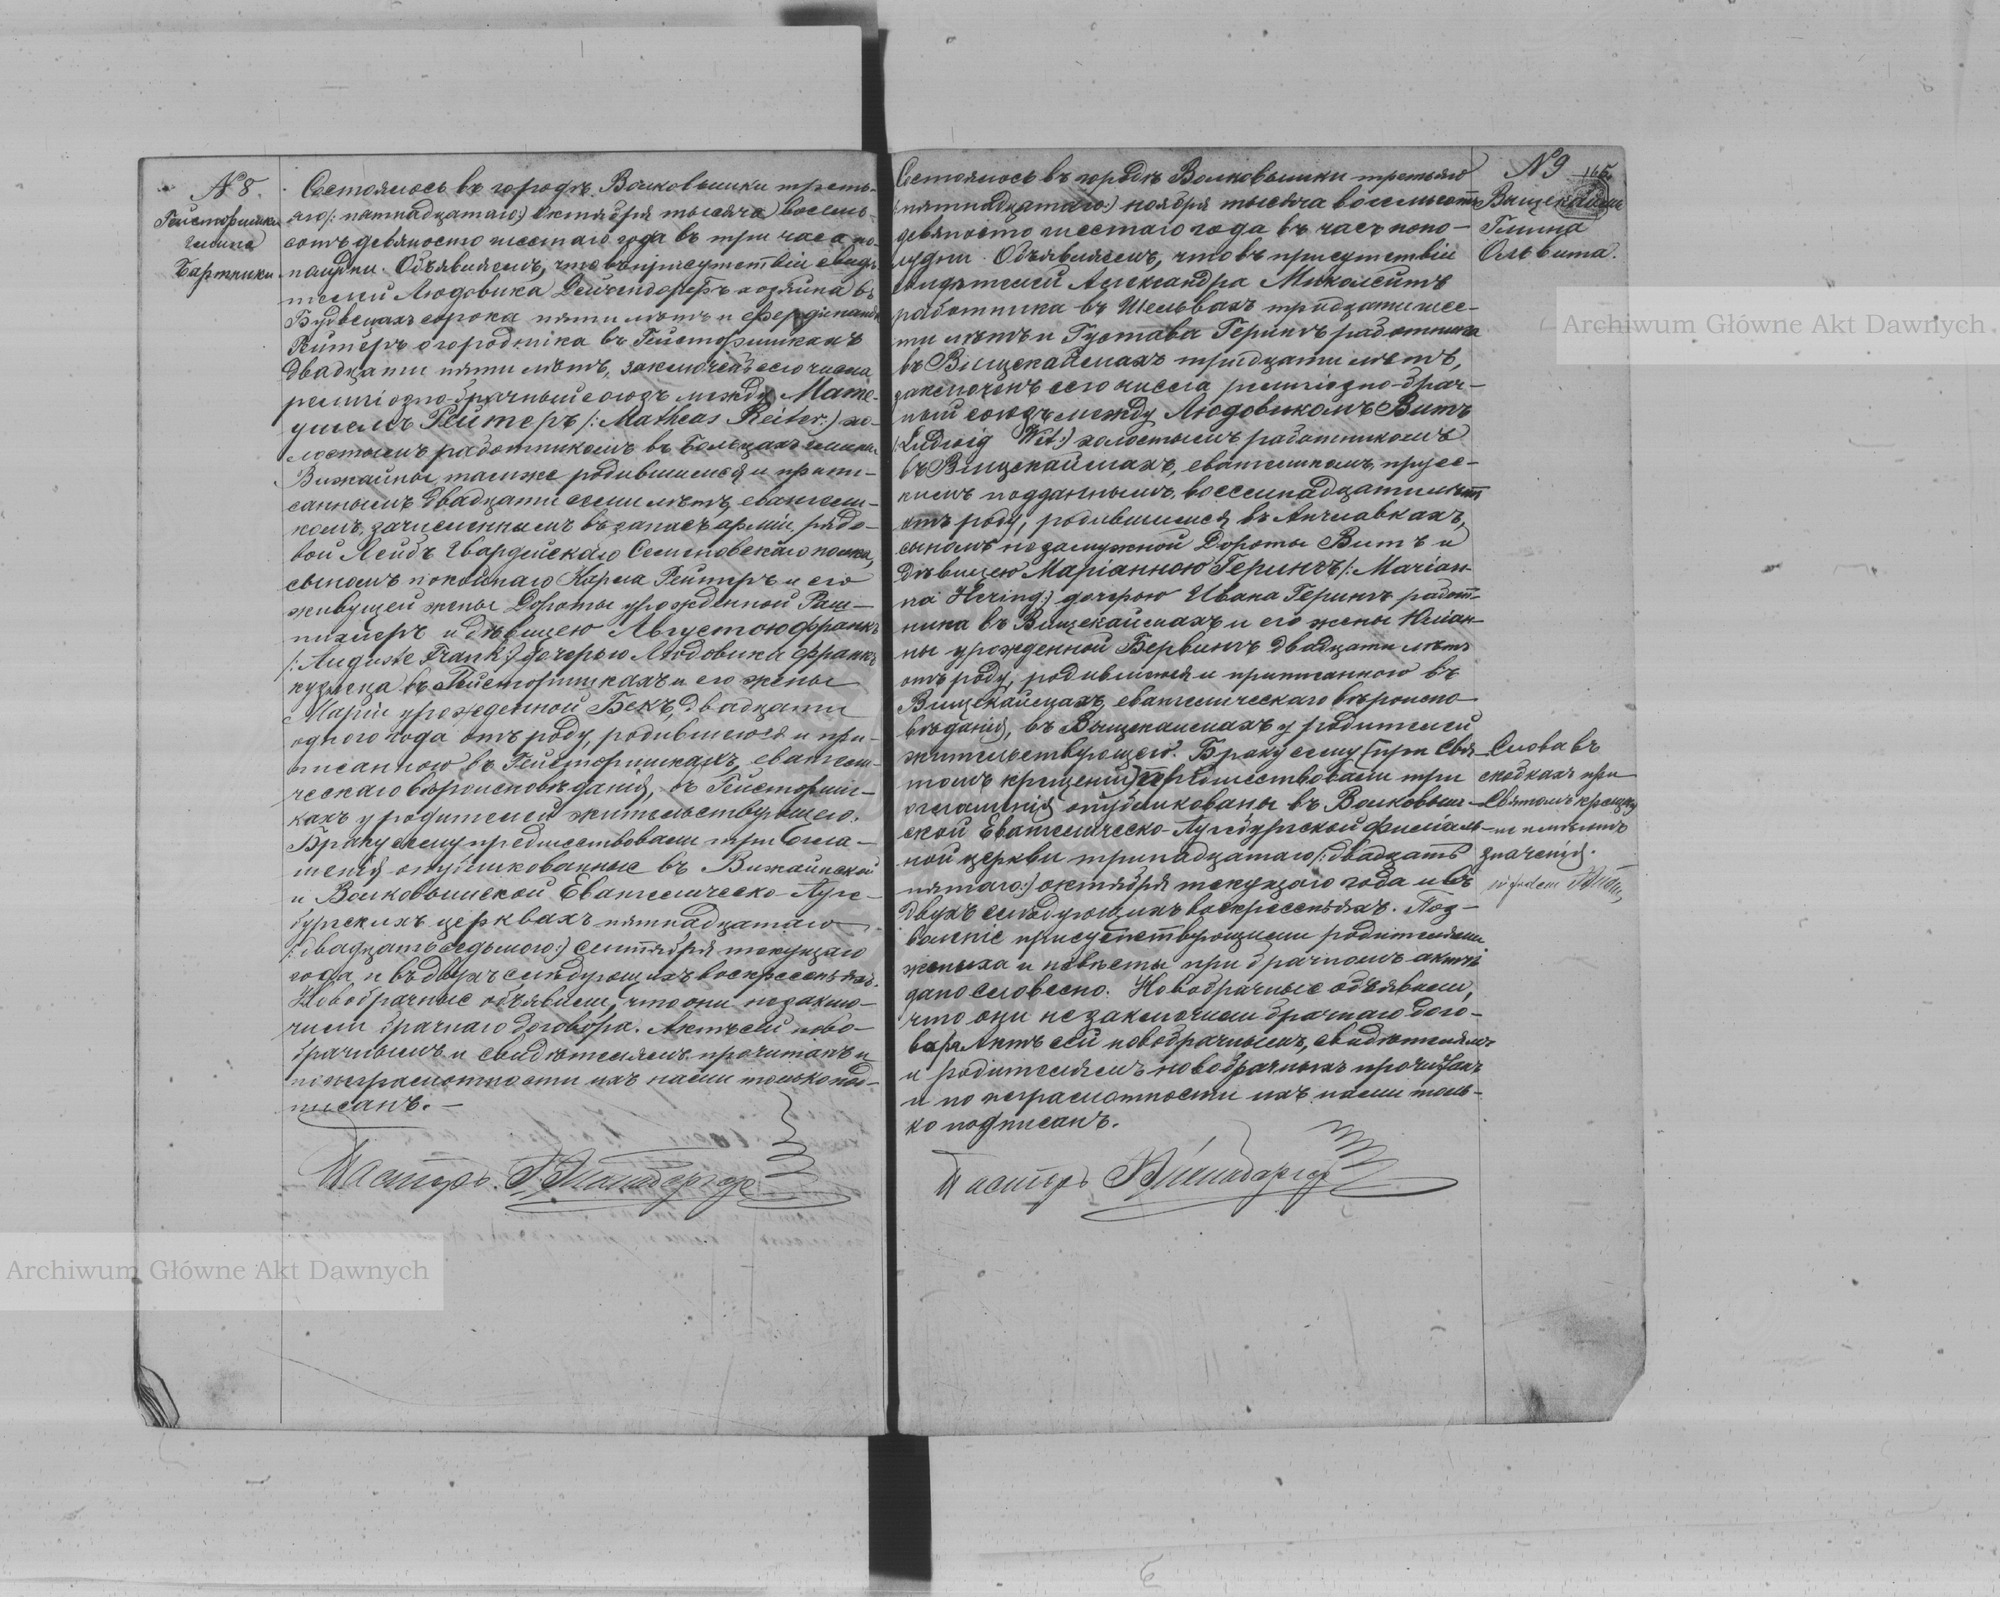 № 8.
Гейсторишки
гмина
Бартники
Состоялось въ городѣ Волковышки треть-
яго /: пятнадцатаго:/ октября тысяча восемь-
сотъ девяносто шестаго года въ три часа по-
полудни. Объявляемъ, что въ присутствіи свидѣ-
телей Людовика Дейчендорфъ хозяина въ
сорока пяти лѣтъ и Фердинанда
Рейтеръ огородника въ Гейсторишкахъ
двадцати пяти лѣтъ, заключенъ сего числа
религіозно-брачный союзъ между Мате-
ушемъ Рейтеръ /: Matheas Reiter:/ хо-
лостымъ работникомъ въ гмины
Вижайны, тамже родившимся и припи-
саннымъ двадцати семи лѣтъ, евангели-
комъ, зачисленнымъ въ запасъ арміи, рядо-
вой Лейбъ Гвардейскаго Семеновскаго полка,
сыномъ покойнаго Карла Рейтеръ и его
живущей жены Дороты урожденной Раш-
и дѣвицею Августою Франкъ
/: Auguste Frank:/ дочерью Людовика Франкъ
кузнеца въ Гейсторишкахъ и его жены
Маріи урожденной Бекъ, двадцати
одного года отъ роду, родившеюся и при-
писанною въ Гейсторишкахъ, евангели-
ческаго вѣроисповѣданія, въ Гейсториш-
кахъ у родителей жительствующею.
Браку сему предшествовали три огла-
шенія опубликованные въ Вижайнской
и Волковышской Евангелическо-Аугс-
бургскихъ церквахъ пятнадцатаго
/: двадцать седьмого:/ сентября текущаго
года и въ двухъ слѣдующихъ воскресеньяхъ.
Новобрачные объявили, что они не заклю-
чили брачнаго договора. Актъ сей ново-
брачнымъ и свидѣтелямъ прочитанъ и
по неграмотности ихъ нами только под-
писанъ. —
Пасторъ
№ 9
Вищекаймы
Гмина
Ольвита.
Состоялось въ городѣ Волковышки третьяго
/: пятнадцатаго:/ ноября тысяча восемьсотъ
девяносто шестаго года въ часъ попо-
лудни. Объявляемъ, что въ присутствіи
свидѣтелей Александра Миколейтъ
работника въ Шельвахъ тридцати шес-
ти лѣтъ и Густава Герингъ работника
въ Вищекаймахъ тридцати лѣтъ,
заключенъ сего числа религіозно-брач-
ный союзъ между Людовикомъ Витъ
/: Ludwig Wit:/ холостымъ работникомъ
въ Вищекаймахъ, евангеликомъ, прусс-
кимъ подданнымъ, восемнадцати лѣтъ
отъ роду, родившимся въ Анчлавкахъ,
сыномъ незамужной Дороты Витъ и
дѣвицею Маріанною Герингъ /: Marian-
na Hering:/ дочерью Ивана Герингъ работ-
ника въ Вищекаймахъ и его жены Юліан-
ны урожденной Бервингъ двадцати лѣтъ
отъ роду, родившеюся и приписанною въ
Вищекаймахъ, евангелическаго вѣроиспо-
вѣданія, въ Вищекаймахъ у родителей
жительствующею. Браку сему (при Свя-
томъ крещеніи) предшествовали три
оглашенія опубликованы въ Волковыш-
ской Евангелическо-Аугсбургской филіаль-
ной церкви тринадцатаго /: двадцать
пятаго:/ октября текущаго года и въ
двухъ слѣдующихъ воскресеньяхъ. Поз-
воленіе присутствующими родителями
жениха и невѣсты при брачномъ актѣ
дано словесно. Новобрачные объявили,
что они не заключили брачнаго дого-
вора. Актъ сей новобрачнымъ, свидѣтелямъ
и родителямъ новобрачныхъ прочитанъ
и по неграмотности ихъ нами толь-
ко подписанъ.
Слова въ
скобкахъ при
Святомъ крещеніи
не имѣютъ
значенія.
Пасторъ
Archiwum Główne Akt Dawnych
Archiwum Główne Akt Dawnych